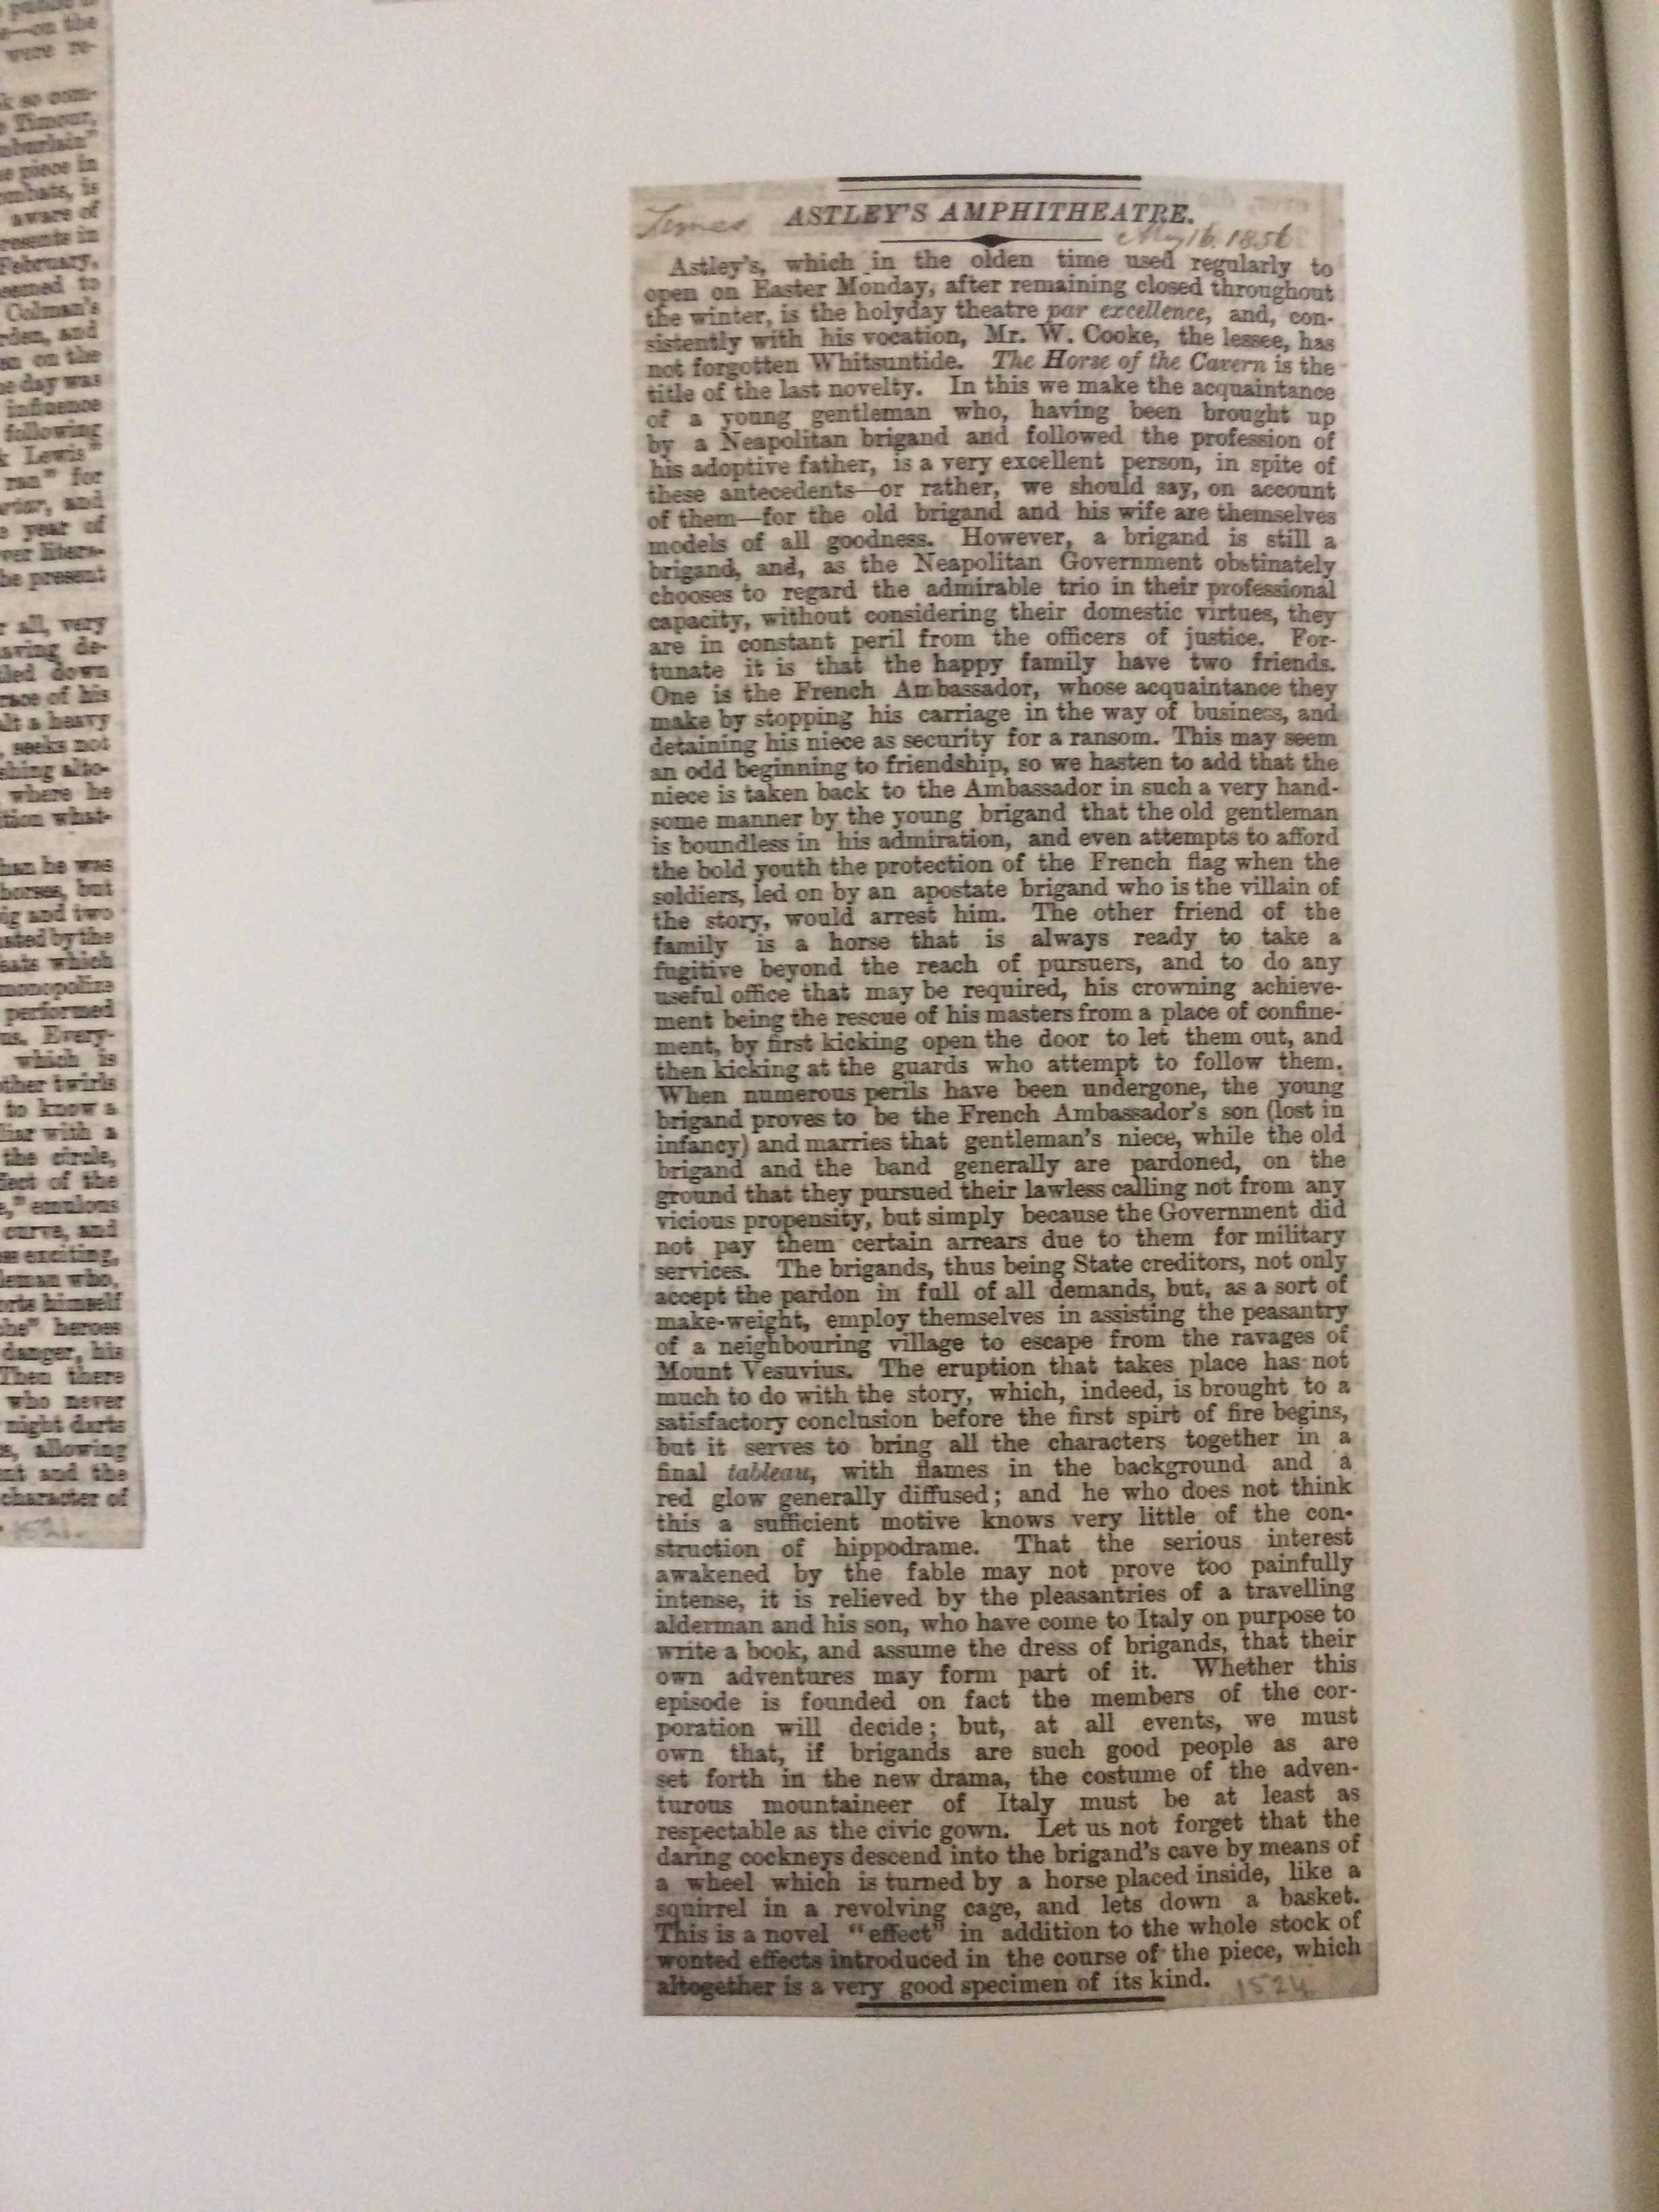 on the
were re-
k so com-
Timour,
mburlain"
e piece in
mbats, is
aware of
resents in
February,
eemed to
Colman's
rden, and
en on the
he day was
influence
following
k Lewis"
ran" for
and
year of
ver litera-
he present
r all, very
aving de-
led down
race of his
lt a heavy
seeks not
shing alto-
where he
tion what-
han he was
horses, but
ig and two
ated by the
eats which
monopolize
performed
ns. Every-
which is
other twirls
to know a
liar with a
the circle,
fect of the
," emulous
curve, and
ss exciting,
leman who,
orts himself
he" heroes
danger, his
Then there
who never
night darts
s, allowing
nt and the
character of
1521.
Times
ASTLEY'S AMPHITHEATRE.
May 16. 1856
Astley's, which in the olden time used regularly to
open on Easter Monday, after remaining closed throughout
the winter, is the holyday theatre par excellence, and, con-
sistently with his vocation, Mr. W. Cooke, the lessee, has
not forgotten Whitsuntide. The Horse of the Cavern is the
title of the last novelty. In this we make the acquaintance
of a young gentleman who, having been brought up
by a Neapolitan brigand and followed the profession of
his adoptive father, is a very excellent person, in spite of
these antecedents—or rather, we should say, on account
of them—for the old brigand and his wife are themselves
models of all goodness. However, a brigand is still a
brigand, and, as the Neapolitan Government obstinately
chooses to regard the admirable trio in their professional
capacity, without considering their domestic virtues, they
are in constant peril from the officers of justice. For-
tunate it is that the happy family have two friends.
One is the French Ambassador, whose acquaintance they
make by stopping his carriage in the way of business, and
detaining his niece as security for a ransom. This may seem
an odd beginning to friendship, so we hasten to add that the
niece is taken back to the Ambassador in such a very hand-
some manner by the young brigand that the old gentleman
is boundless in his admiration, and even attempts to afford
the bold youth the protection of the French flag when the
soldiers, led on by an apostate brigand who is the villain of
the story, would arrest him. The other friend of the
family is a horse that is always ready to take a
fugitive beyond the reach of pursuers, and to do any
useful office that may be required, his crowning achieve-
ment being the rescue of his masters from a place of confine-
ment, by first kicking open the door to let them out, and
then kicking at the guards who attempt to follow them.
When numerous perils have been undergone, the young
brigand proves to be the French Ambassador's son (lost in
infancy) and marries that gentleman's niece, while the old
brigand and the band generally are pardoned, on the
ground that they pursued their lawless calling not from any
vicious propensity, but simply because the Government did
not pay them certain arrears due to them for military
services. The brigands, thus being State creditors, not only
accept the pardon in full of all demands, but, as a sort of
make-weight, employ themselves in assisting the peasantry
of a neighbouring village to escape from the ravages of
Mount Vesuvius. The eruption that takes place has not
much to do with the story, which, indeed, is brought to a
satisfactory conclusion before the first spirt of fire begins,
but it serves to bring all the characters together in a
final tableau, with flames in the background and a
red glow generally diffused; and he who does not think
this a sufficient motive knows very little of the con-
struction of hippodrame. That the serious interest
awakened by the fable may not prove too painfully
intense, it is relieved by the pleasantries of a travelling
alderman and his son, who have come to Italy on purpose to
write a book, and assume the dress of brigands, that their
own adventures may form part of it. Whether this
episode is founded on fact the members of the cor-
poration will decide; but, at all events, we must
own that, if brigands are such good people as are
set forth in the new drama, the costume of the adven-
turous mountaineer of Italy must be at least as
respectable as the civic gown. Let us not forget that the
daring cockneys descend into the brigand's cave by means of
a wheel which is turned by a horse placed inside, like a
squirrel in a revolving cage, and lets down a basket.
This is a novel "effect" in addition to the whole stock of
wonted effects introduced in the course of the piece, which
altogether is a very good specimen of its kind.
1524